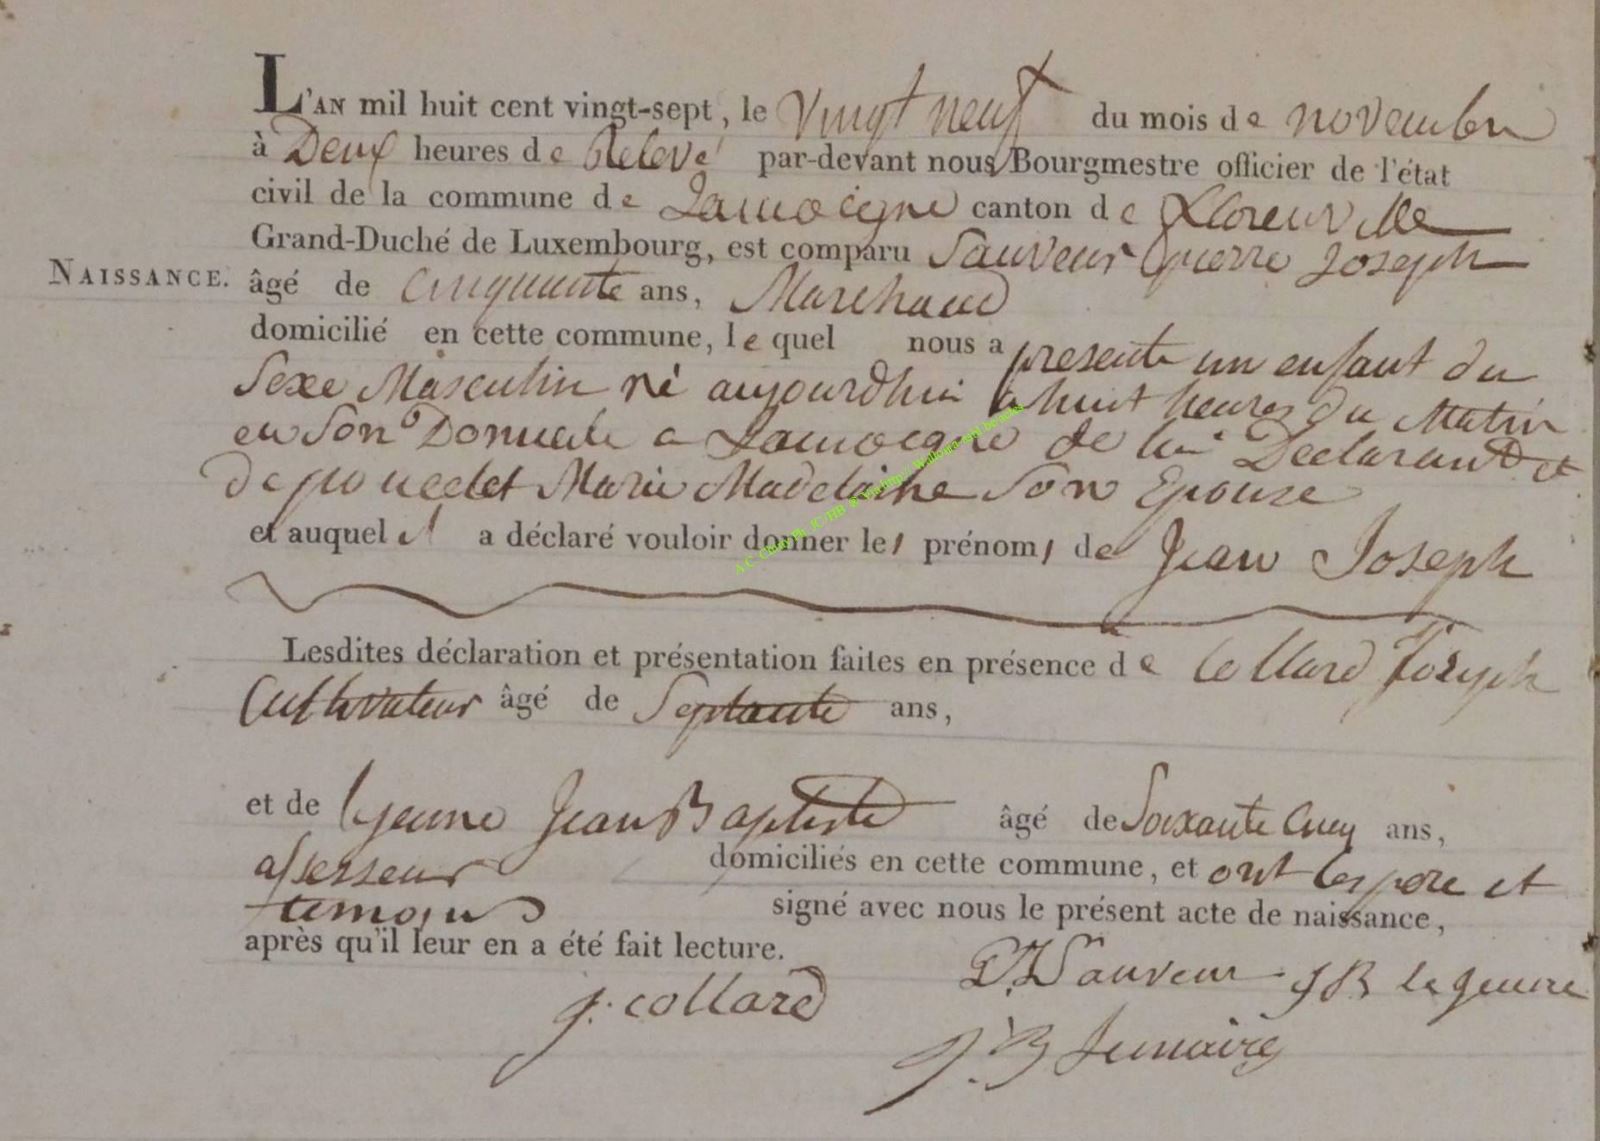 L'AN mil huit cent vingt-sept, le vingt neuf du mois de novembre
à Deux heures de Relevé par-devant nous Bourgmestre officier de l'état
civil de la commune de Lamoigne canton de fflorenville
Grand-Duché de Luxembourg, est comparu Sauveur pierre Joseph
NAISSANCE. âgé de cinquante ans, Marchand
domicilié en cette commune, lequel nous a presenté un enfant du
Sexe Masculin né aujourdhui a huit heures du Matin
en Son Domicile a Lamoigne de lui Declarant et
de Marie Madelaine Son Epouse
et auquel il a déclaré vouloir donner les prénoms de Jean Joseph
Lesdites déclaration et présentation faites en présence de Collard Joseph
Cultivateur âgé de Septante ans,
et de lejeune Jean Baptiste âgé de Soixante Cinq ans,
assesseur domiciliés en cette commune, et ont les pere et
temoins signé avec nous le présent acte de naissance,
après qu'il leur en a été fait lecture.
P.J Sauveur JB le jeune
j. collard
J.B Lemaire